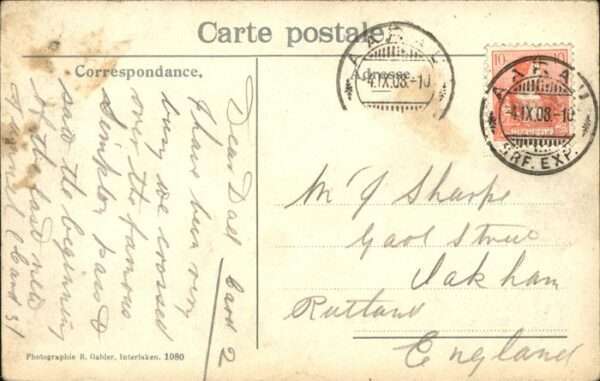 Carte postale.
Correspondance.
Adresse.
AARAU
-4.IX.08.-10
BRF. EXP.
AARAU
-4.IX.08.-10
10
HELVETIA
Card 2
Dear Dad
I have been very
busy we crossed
over the famous
Simplon pass &
saw the beginning
of the last new
tunnel (Card 3)
Mr J Sharpe
Gaol Street
Oakham
Rutland
England
Photographie R. Gabler, Interlaken. 1080